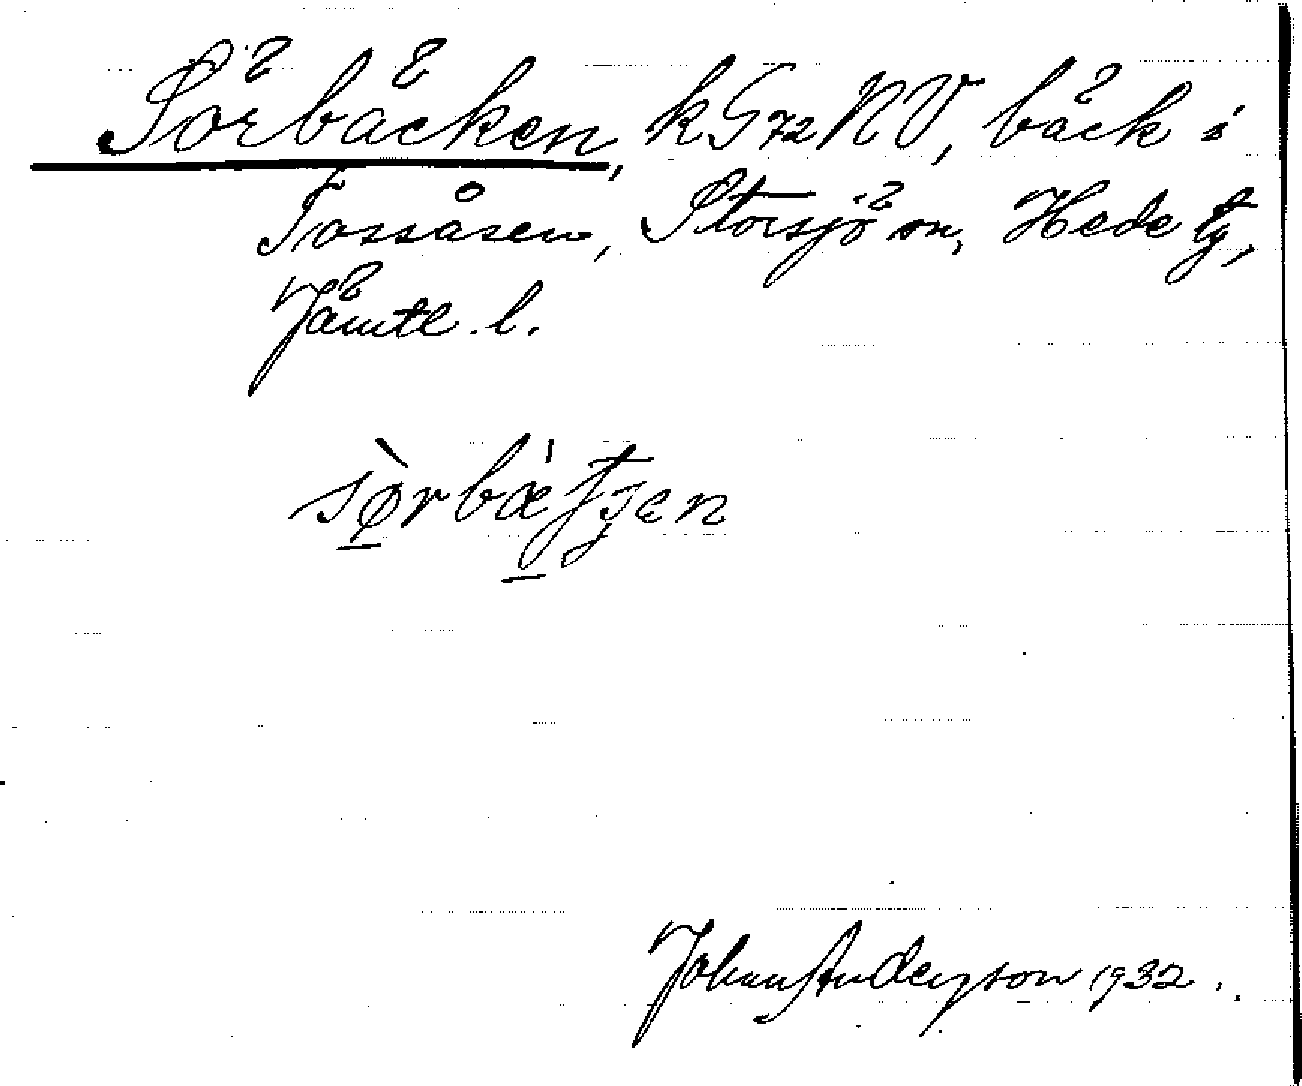 Sörbäcken, k G72 NV, bäck i
Tossåsen, Storsjö sn, Hede tg,
Jämtl. l.
sø̀rbæ̀tʃen
Johan Anderson 1932.